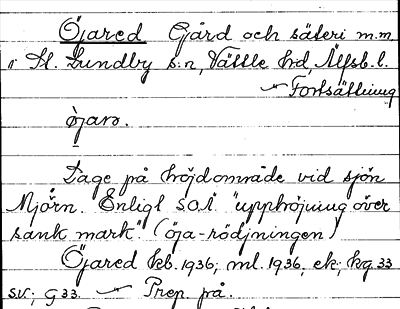 Öjared Gård och säteri m.m.
i St. Lundby s:n, Vättle hd, Älfsb. l.
Fortsättning
öjarə.
Läge på höjdområde vid sjön
Mjörn. Enligt SOÄ "upphöjning över
sank mark" (öja-rödjningen)
Öjared kb. 1936; ml. 1936, ek; hg. 33
sv; G 33. Prep. på.